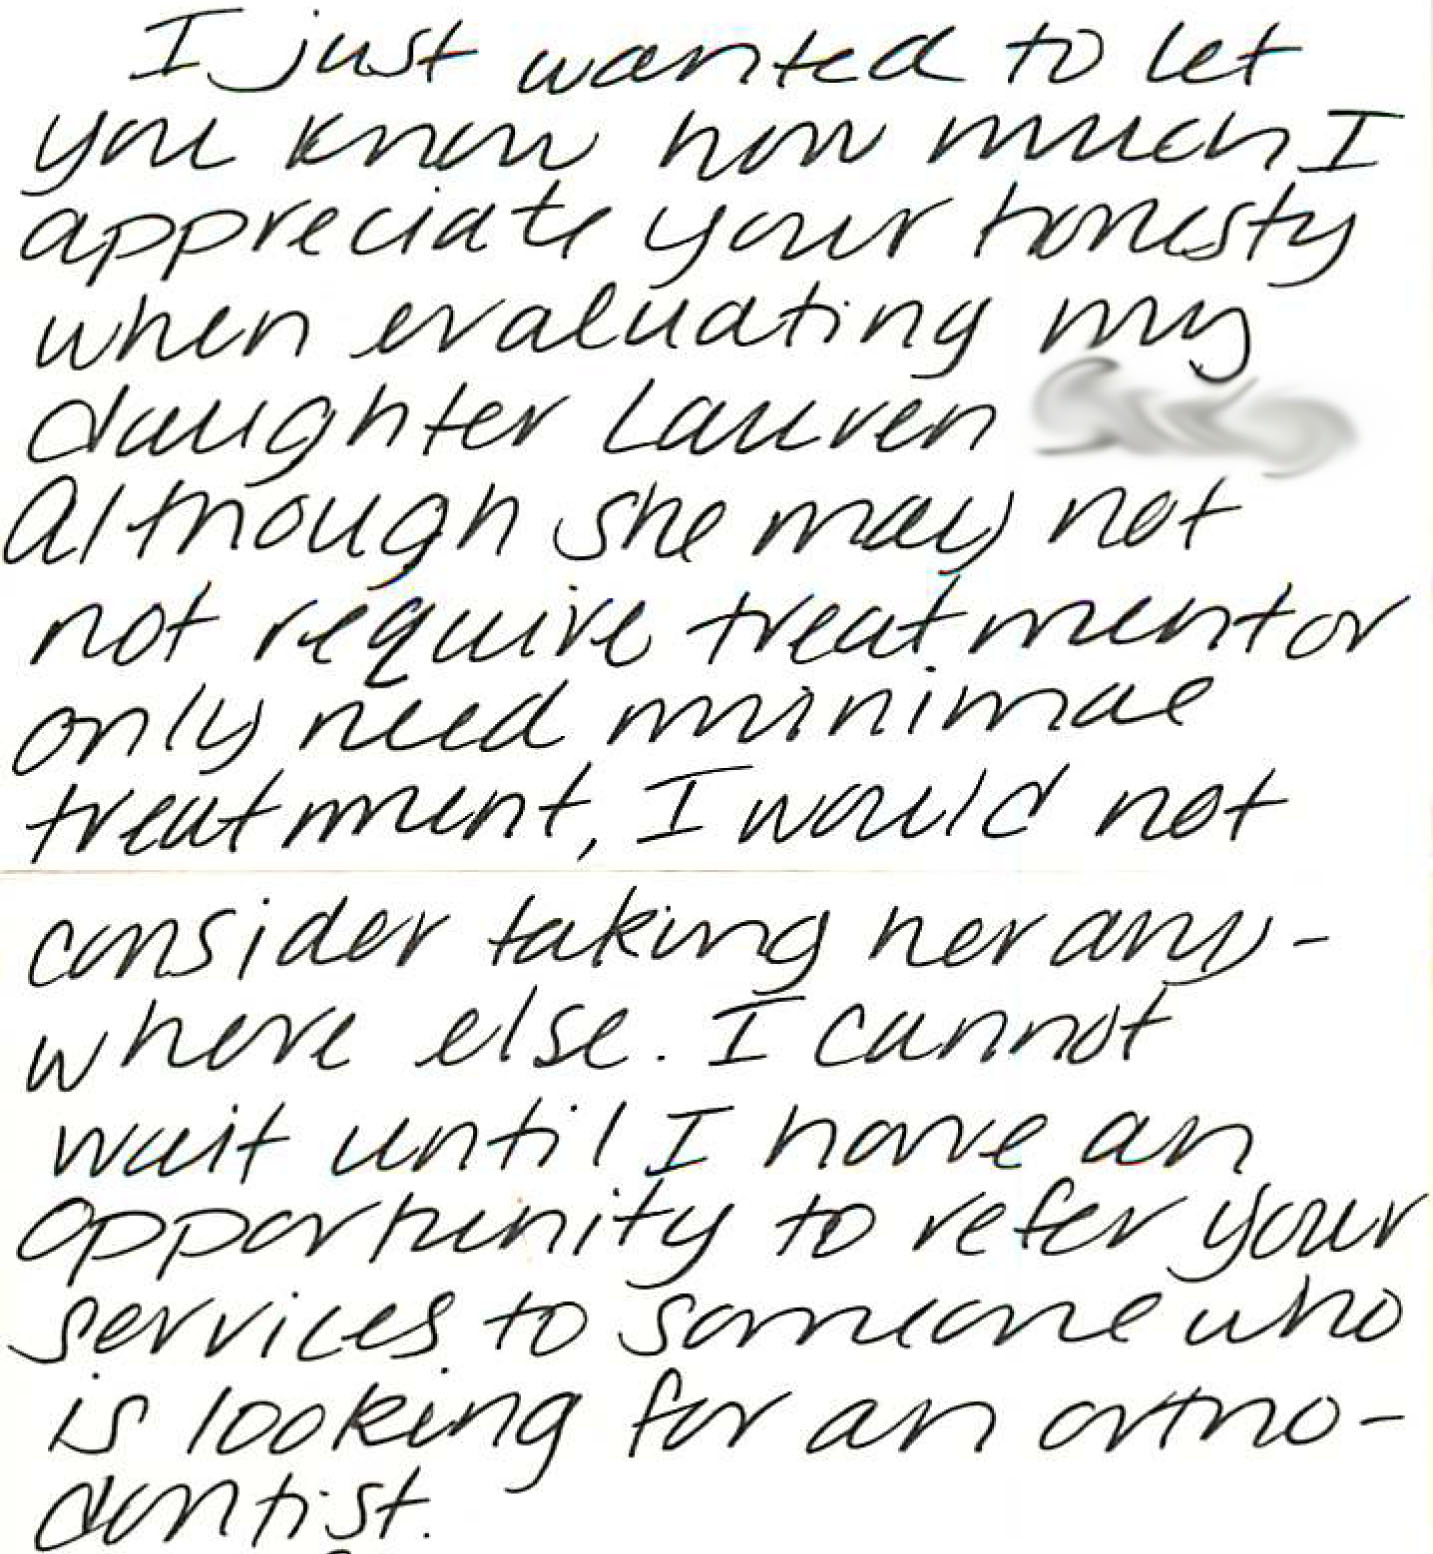 I just wanted to let
you know how much I
appreciate your honesty
when evaluating my
daughter Lauren
Although she may not
not require treatment or
only need minimal
treatment, I would not
consider taking her any-
where else. I cannot
wait until I have an
opportunity to refer your
services to someone who
is looking for an ortho-
dontist.